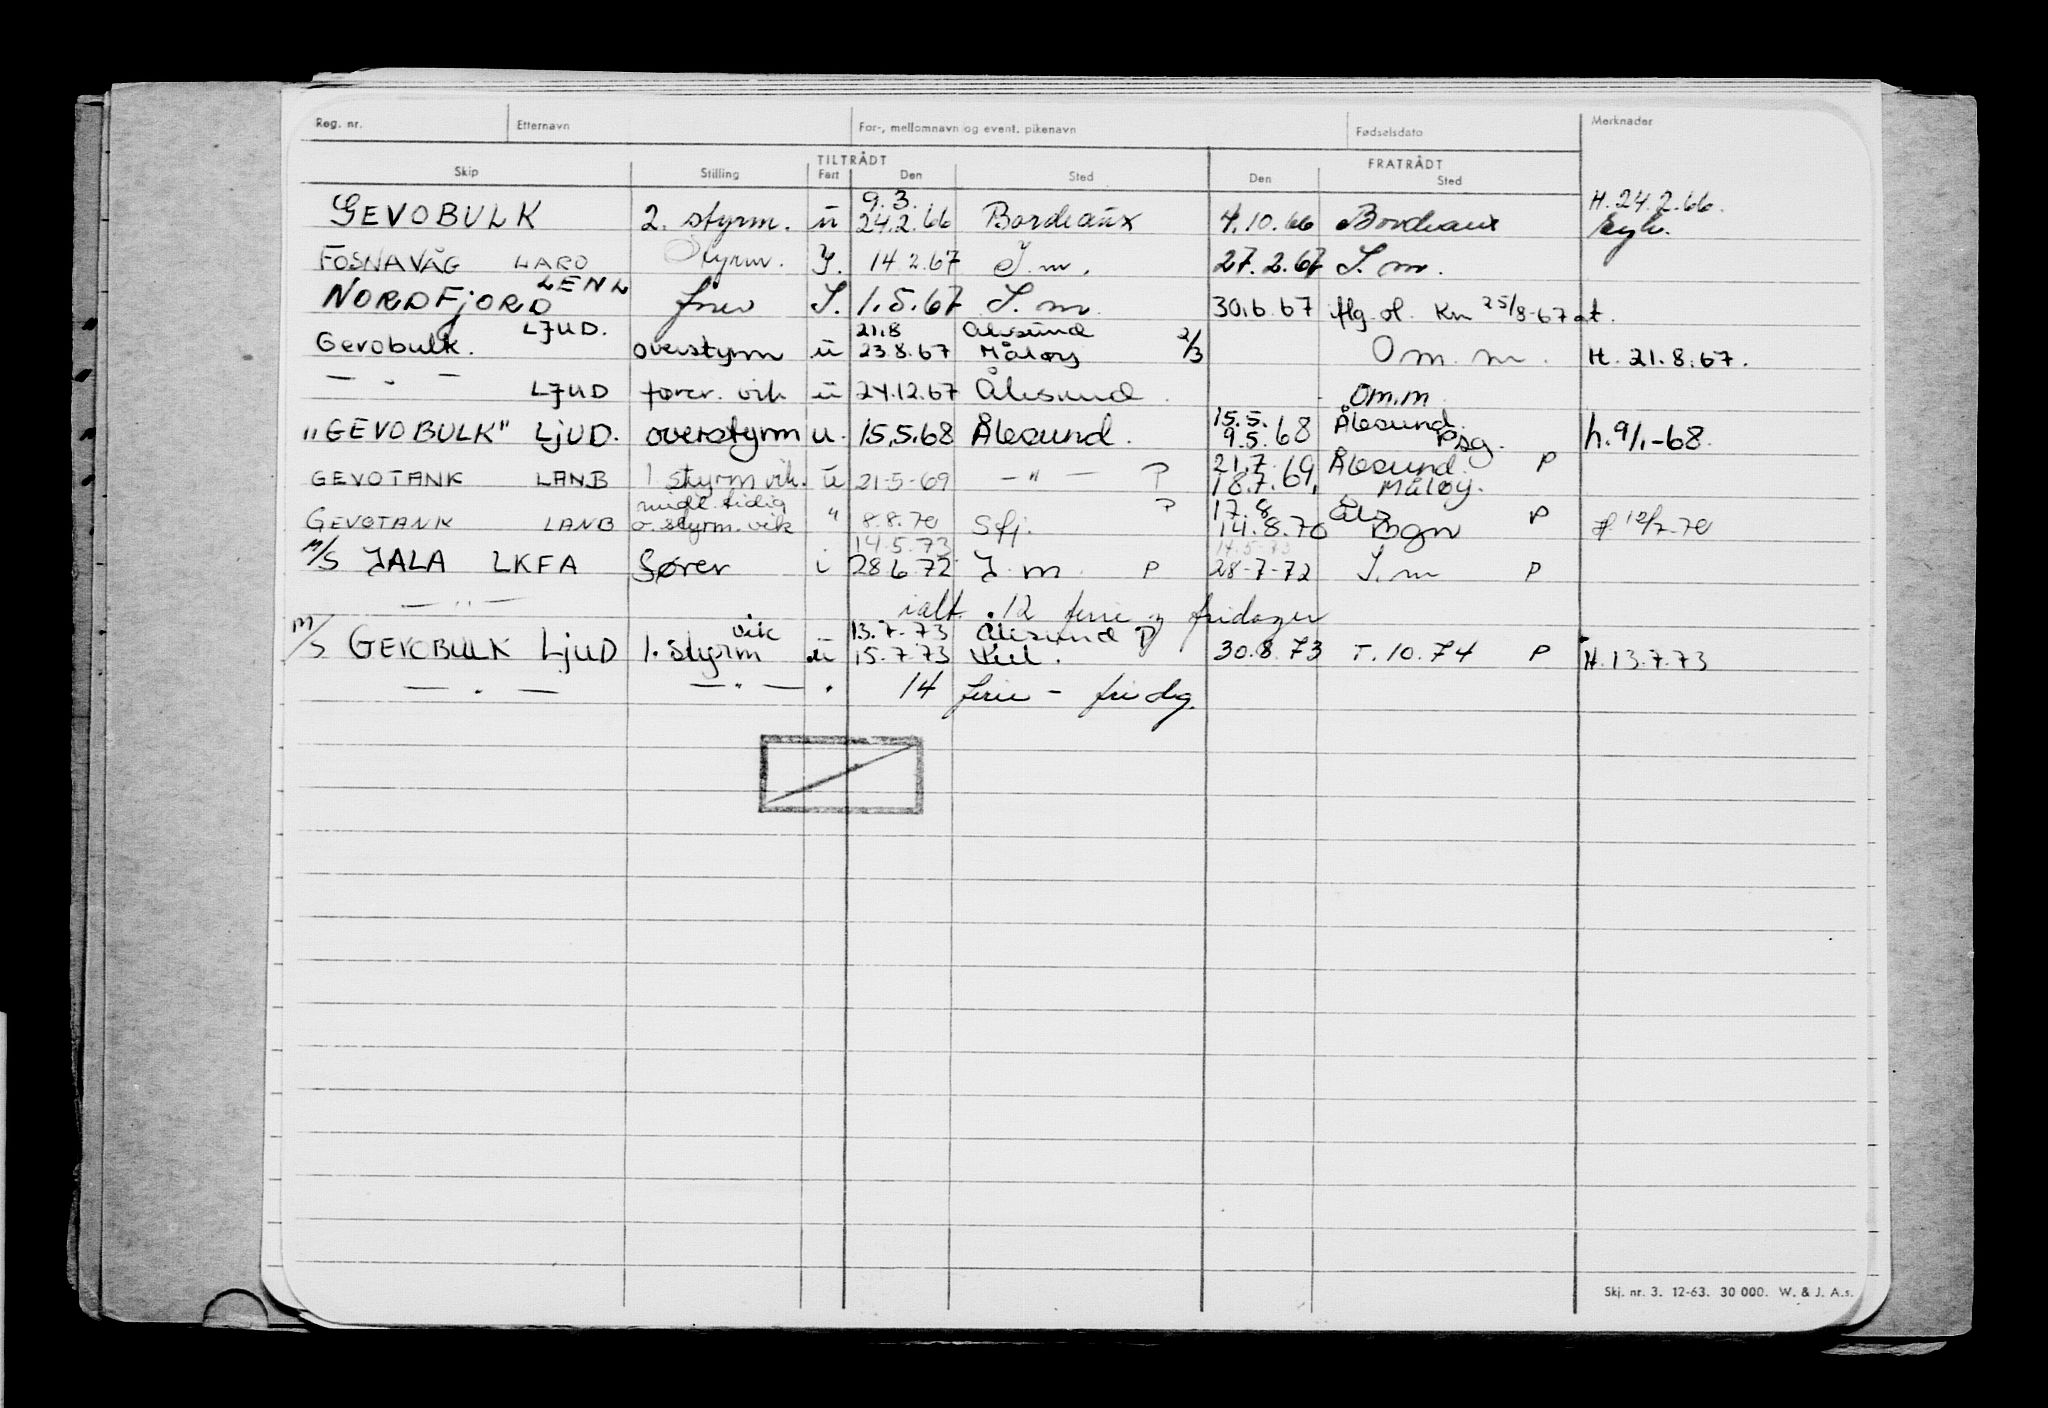 Reg. nr. Etternavn For-, mellomnavn og event. pikenavn Fødselsdato Merknader
TILTRÅDT FRATRÅDT
Skip Stilling Fart Den Sted Den Sted
9.3. H. 24.2.66.
GEVOBULK 2. styrm. u 24.2.66 Bordeaux 4.10.66 Bordeaux
FOSNAVÅG LARO Styrm. I. 14.2.67 I.m. 27.2.67 I.m.
LENL
NORDFJORD I. 1.5.67 I.m. 30.6.67 flg. ol. Kn 25/8-67 at.
LJUD. 21.8 Ålesund 2/3
Gevobulk. overstyrm u 23.8.67 Måløy Om. m. H. 21.8.67.
— " — LJUD fører. vik u 24.12.67 Ålesund Om.m.
15.5. Ålesund.
"GEVOBULK" LJUD. overstyrm u. 15.5.68 Ålesund. 9.5.68 Psg. h. 9/1-68.
21.7.69 Ålesund. P
GEVOTANK LANB 1 styrm vik. u 21-5-69 — " — P 18.7.69. Måløy.
midl. tidig P 17.8 Åls P
GEVOTANK LANB o. styrm. vik " 8.8.70 Sfj. 14.8.70 Bgn H 12/7-70
14.5.73 14.5-73
M/S JALA LKFA fører i 28.6.72 I.m. P 28-7-72 I.m P
— " — ialt. 12 ferie og fridager
vik 13.7.73 Ålesund P
M/S GEVOBULK LJUD 1. styrm u 15.7.73 Kiel. 30.8.73 T.10.74 P H. 13.7.73
— " — — " — " 14 ferie - fridg.
Skj. nr. 3. 12-63. 30 000. W. & J. A.s.